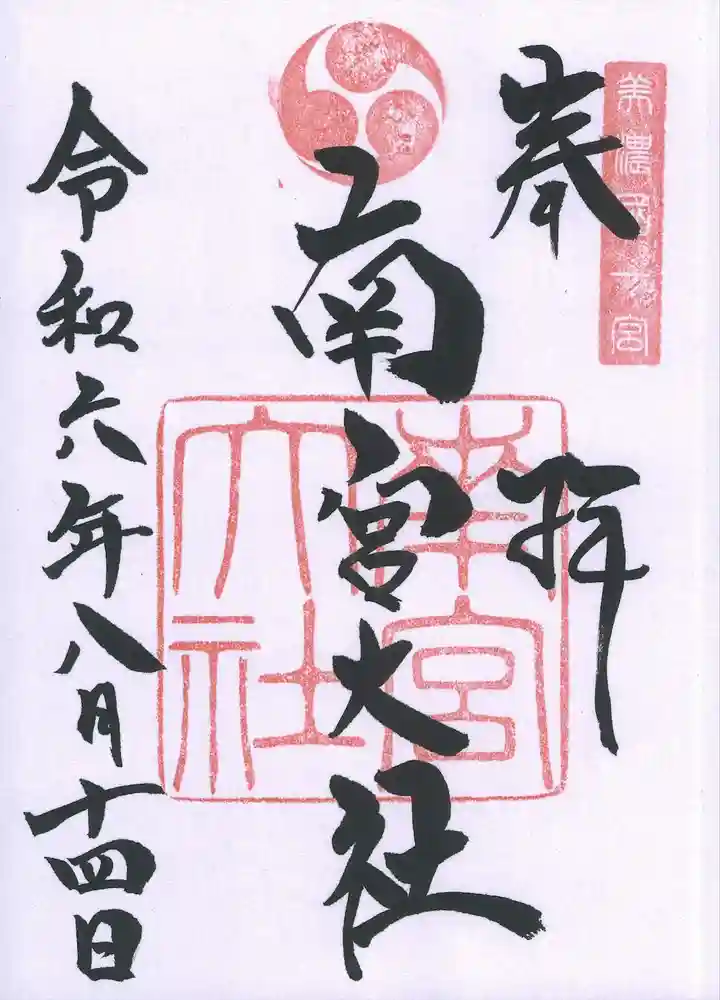 奉拝
美濃国一宮
南宮大社
南宮大社
令和六年八月十四日